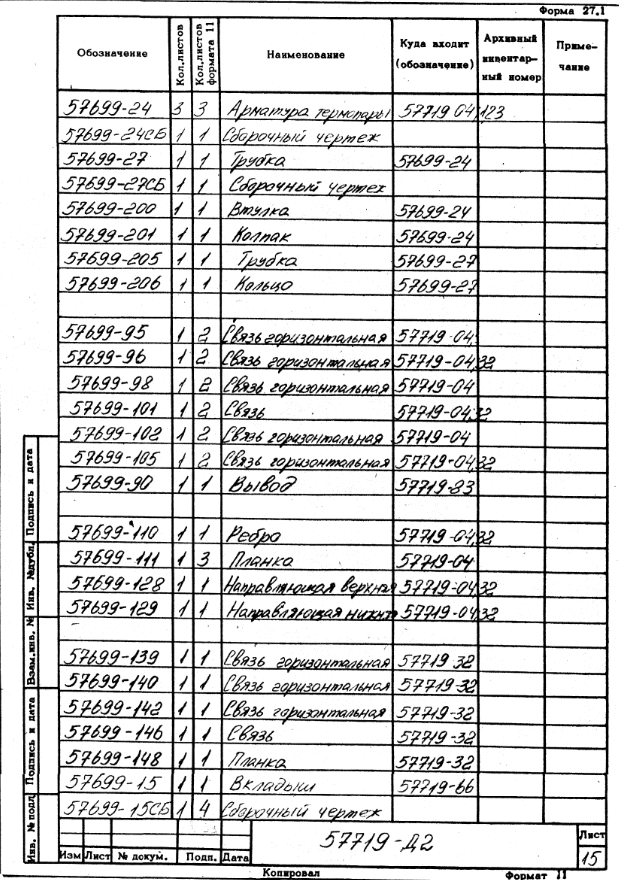 Форма 27.1
Обозначение Кол.листов Кол.листов формата 11 Наименование Куда входит (обозначение) Архивный инвентар-ный номер Приме-чание
57699-24 3 3 Арматура термопары 57719 04,123
57699-24СБ 1 1 Сборочный чертеж
57699-27 1 1 Трубка 57699-24
57699-27СБ 1 1 Сборочный чертеж
57699-200 1 1 Втулка 57699-24
57699-201 1 1 Колпак 57699-24
57699-205 1 1 Трубка 57699-27
57699-206 1 1 Кольцо 57699-27
57699-95 1 2 Связь горизонтальная 57719-04
57699-96 1 2 Связь горизонтальная 57719-04,32
57699-98 1 2 Связь горизонтальная 57719-04
57699-101 1 2 Связь 57719-04,32
57699-102 1 2 Связь горизонтальная 57719-04
57699-105 1 2 Связь горизонтальная 57719-04,32
57699-90 1 1 Вывод 57719-83
57699-110 1 1 Ребро 57719-04,32
57699-111 1 3 Планка 57719-04
57699-128 1 1 Направляющая верхняя 57719-04,32
57699-129 1 1 Направляющая нижняя 57719-04,32
57699-139 1 1 Связь горизонтальная 57719-32
57699-140 1 1 Связь горизонтальная 57719-32
57699-142 1 1 Связь горизонтальная 57719-32
57699-146 1 1 Связь 57719-32
57699-148 1 1 Планка 57719-32
57699-15 1 1 Вкладыш 57719-66
57699-15СБ 1 4 Сборочный чертеж
Инв. № подл Подпись и дата Взам.инв. № Инв. №дубл. Подпись и дата
57719-Д2
Лист
15
Изм Лист № докум. Подп. Дата
Копировал Формат 11